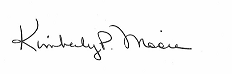 Kimberly P. Moore